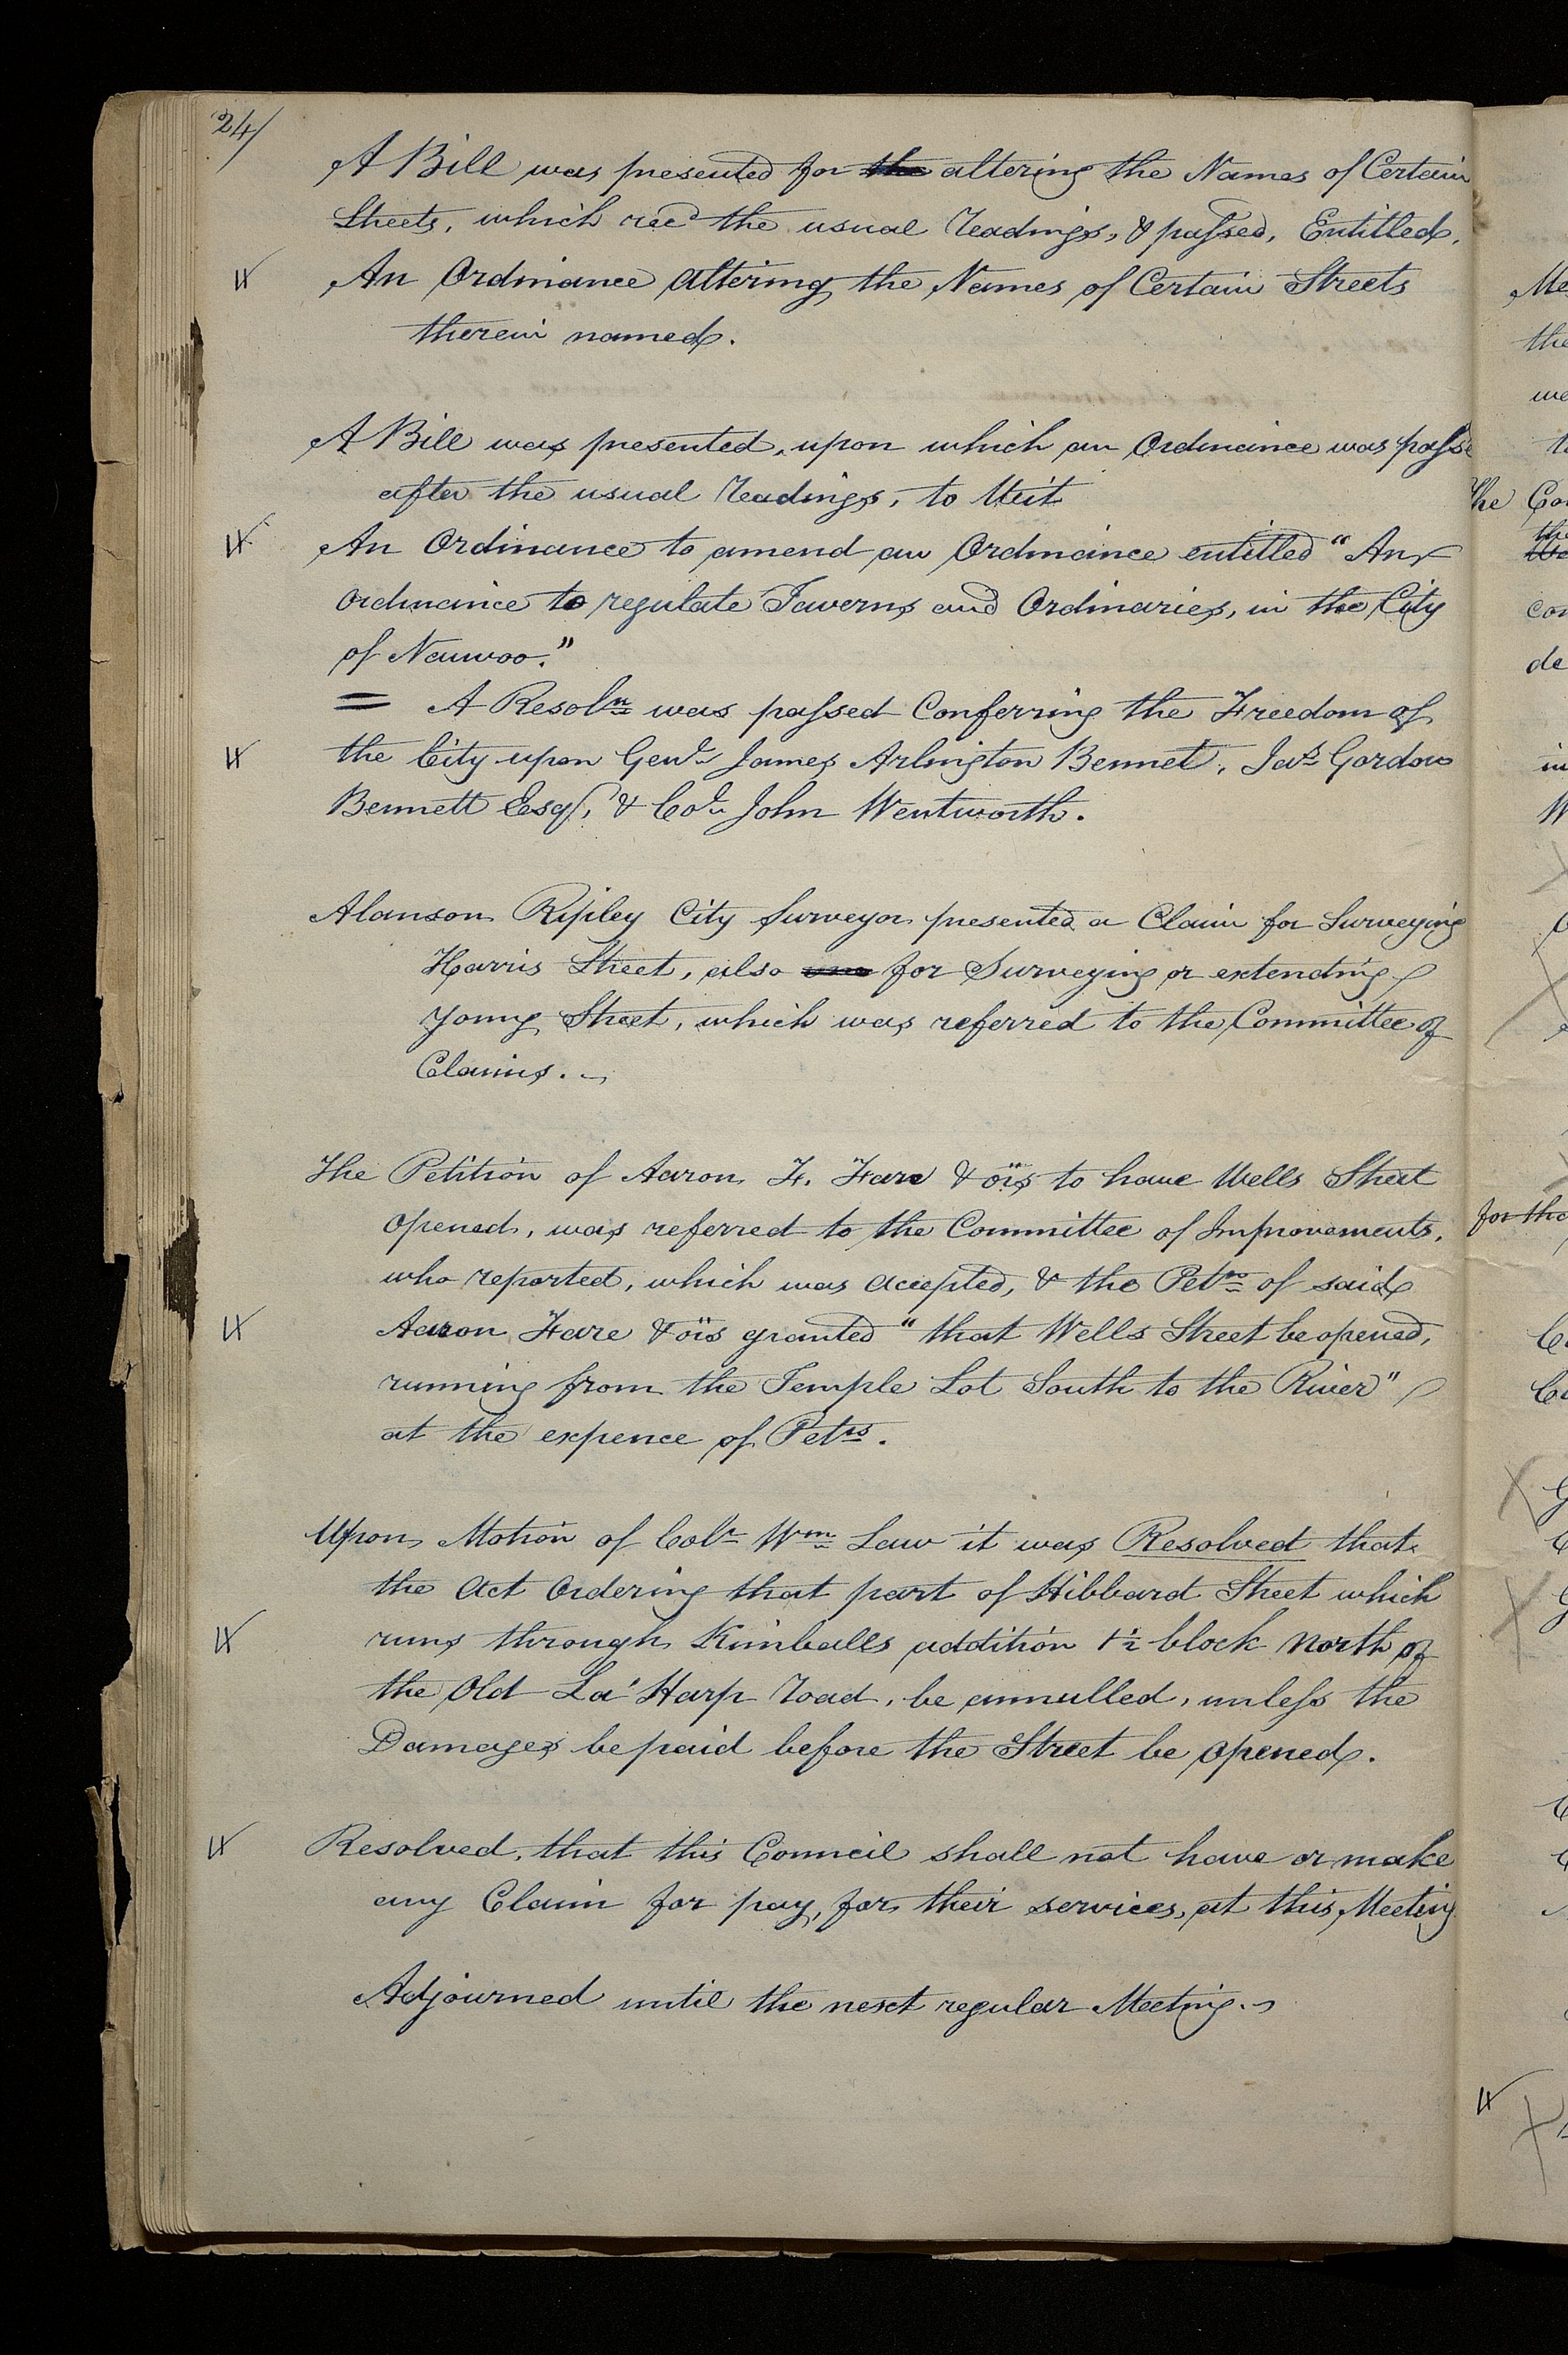 24/
A Bill was presented for the altering the Names of Certain
Streets, which recd the usual readings, & passed, Entitled.
An Ordinance altering the Names of Certain Streets
therein named.
A Bill was presented, upon which an Ordinance was passe
after the usual readings, to Wit
An Ordinance to amend an Ordinance entitled "An
Ordinance to regulate Taverns and Ordinaries, in the City
of Nauvoo."
= A Resoln was passed Conferring the Freedom of
the City upon Genl James Arlington Bennet, Jas Gordon
Bennett Esqr, & Col John Wentworth.
Alanson Ripley City Surveyor presented a Claim for Surveying
Harris Street, also for Surveying or extending
Young Street, which was referred to the Committee of
Claims.
The Petition of Aaron F. Farr & ors to have Wells Street
opened, was referred to the Committee of Improvements,
who reported, which was accepted, & the Petn of said
Aaron Farr & ors granted "that Wells Street be opened,
running from the Temple Lot South to the River"
at the expence of Petrs.
Upon Motion of Colr Wm Law it was Resolved that
the Act Ordering that part of Hibbard Street which
runs through Kimballs addition 1½ block North of
the Old La'Harp road, be annulled, unless the
Damages be paid before the Street be opened.
Resolved, that this Council shall not have or make
any Claim for pay, for their services, at this Meeting
Adjourned until the next regular Meeting.